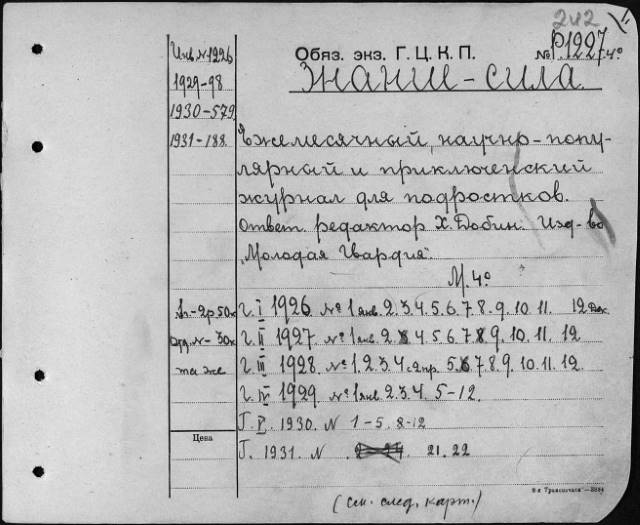 242
Инв. №1226
1929-98
1930-579
1931-188.
Обяз. экз. Г. Ц. К. П.
№ Р.1227 4°
Знание-сила.
Ежемесячный, научно-попу-
лярный и приключенский
журнал для подростков.
Ответ. редактор Х. Добин. Изд-во
„Молодая Гвардия".
М. 4°
-2р50к
№-30к
та же
г. I 1926. №1 янв. 2.3.4.5.6.7.8.9.10.11. 12 дек
г. II 1927. №1 янв. 2. 4.5.6.7.8.9.10.11.12
г. III 1928. №1.2.3.4 апр. 5.6.7.8.9.10.11.12.
г. IV 1929. №1 янв. 2.3.4. 5-12.
Г. V. 1930. N 1-5. 8-12
Г. 1931. N 21. 22
Цена
(см. след. карт.)